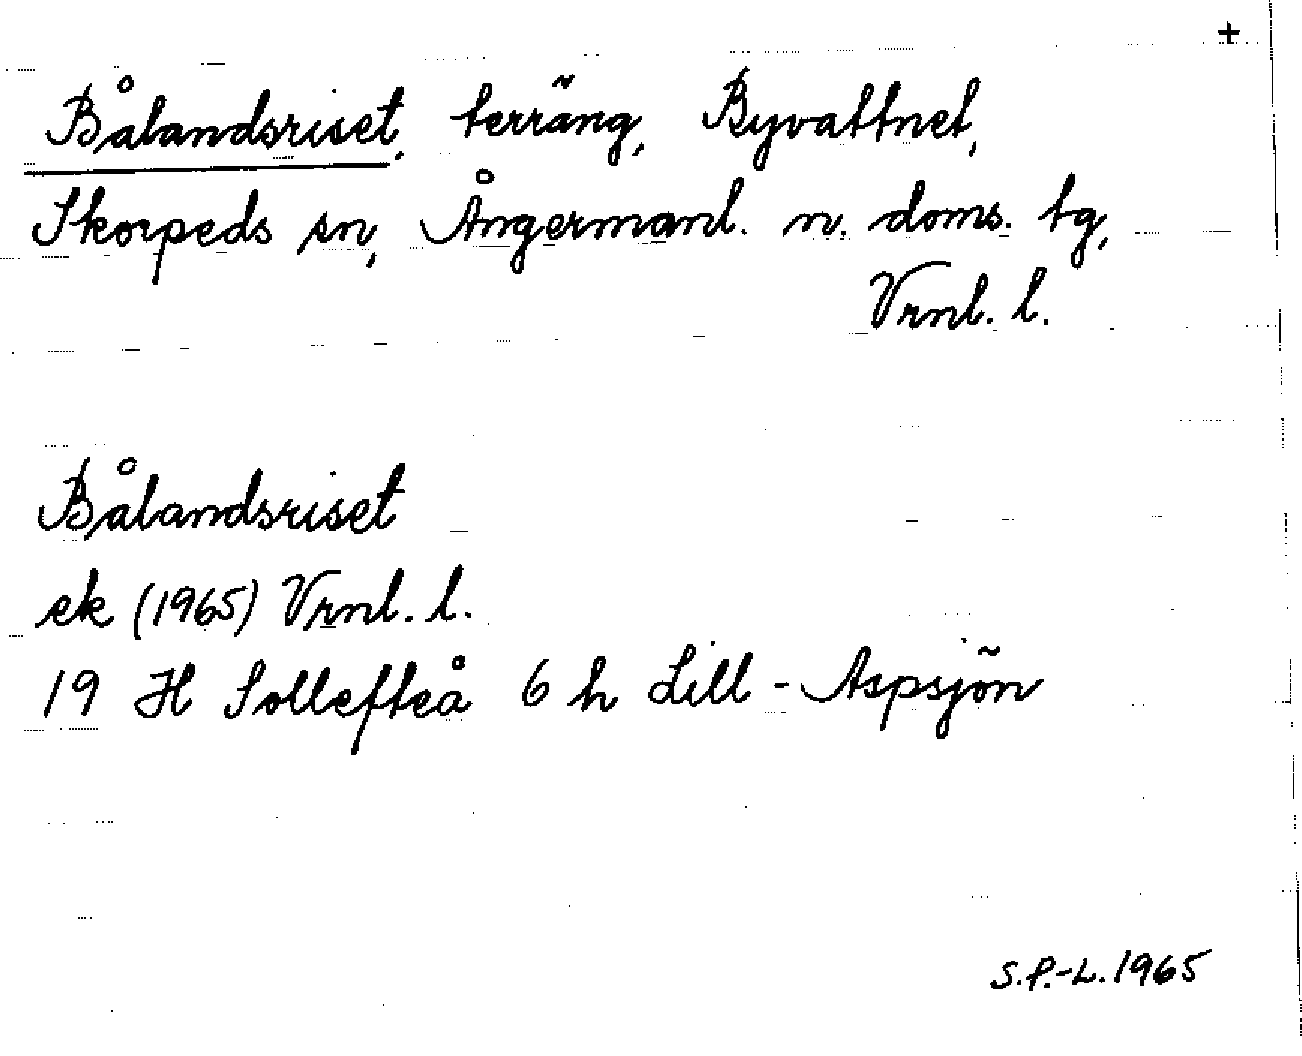 +
Bålandsriset, terräng, Byvattnet,
Skorpeds sn, Ångermanl. n. doms. tg,
Vrnl. l.
Bålandsriset
ek (1965) Vrnl. l.
19 H Sollefteå 6 h Lill-Aspsjön
S.P.-L. 1965